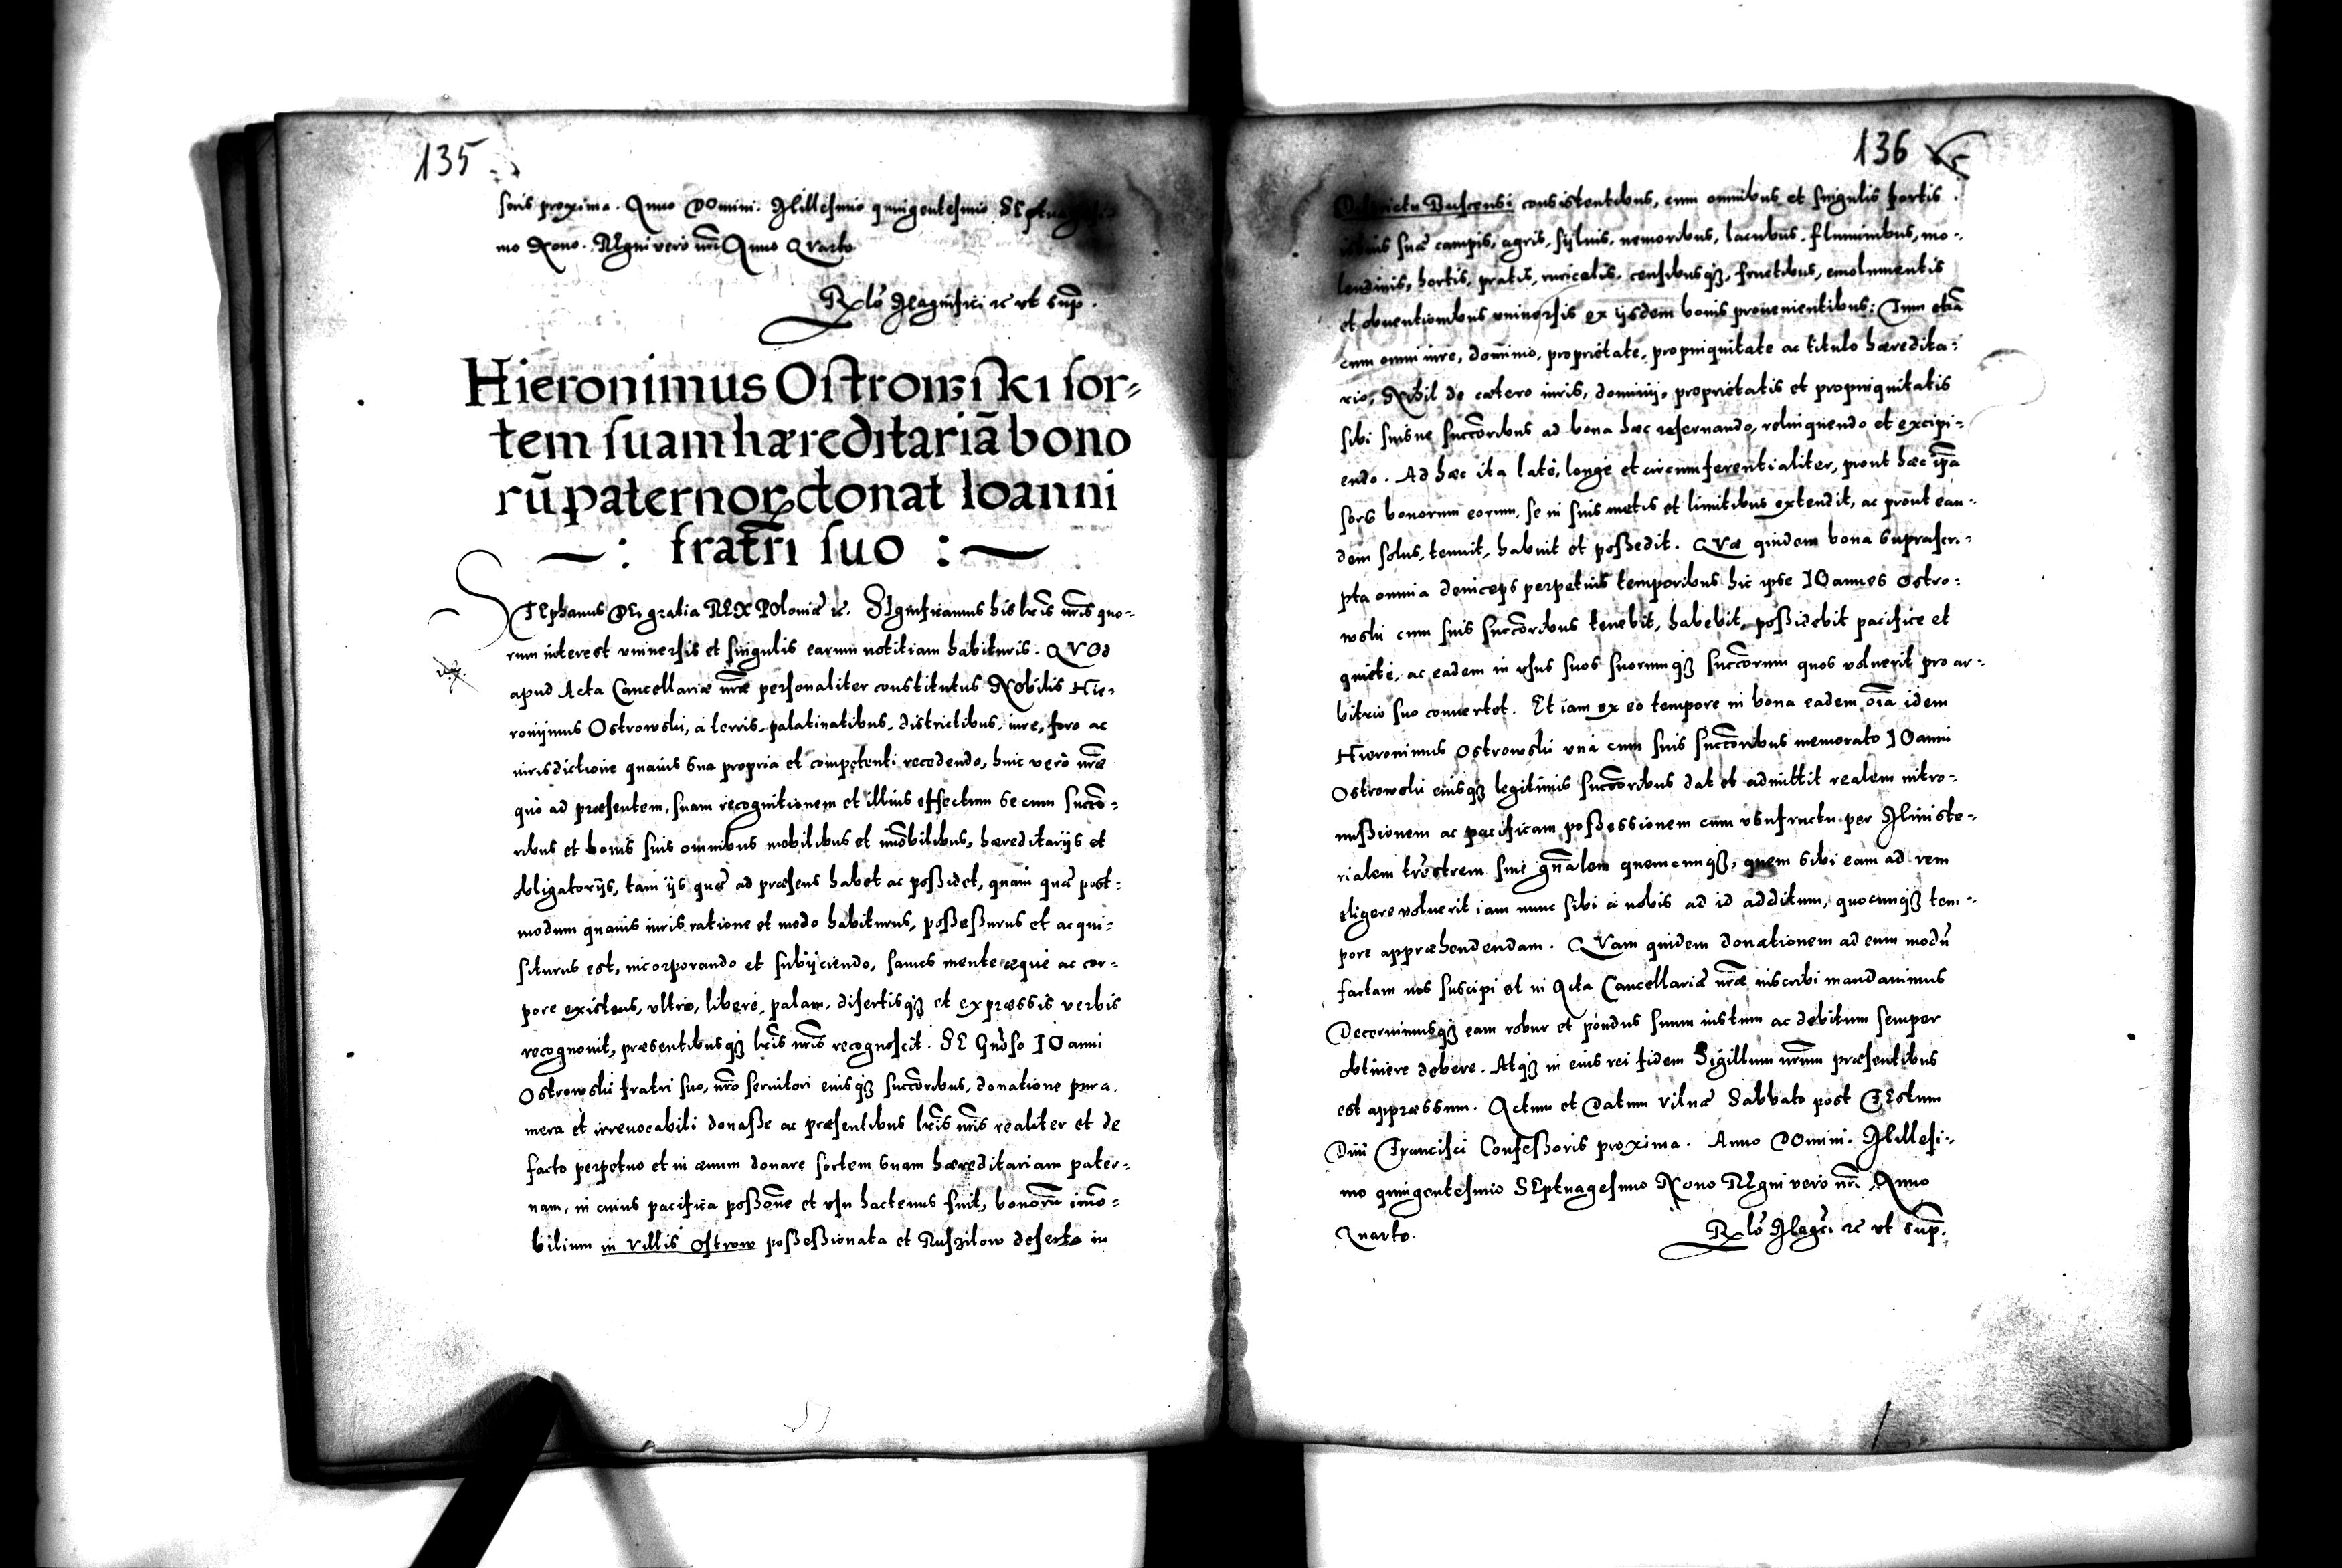 135
soris proxima. Anno DOmini. Millesimo quingentesimo SEptuagesi
mo Nono. REgni vero nrĩ Anno QVarto
Rlõ Magnifici rc vt sup̃.
Hieronimus Ostrowski sor-
tem suam hæreditariã bono
rũ paternoꝝ donat Ioanni
~: fratri suo :~
STEphanus DEi gratia REX POloniæ rc. SIgnificamus his lr̃is nr̃is quo-
rum interest vniuersis et singulis earum notitiam habituris. QVOd
apud Acta Cancellariæ nr̃æ personaliter constitutus Nobilis Hie-
ronijmus Ostrowski, à terris, palatinatibus, districtibus, iure, foro ac
iurisdictione quauis sua propria et competenti recedendo, huic verò nr̃æ
quò ad præsentem, suam recognitionem et illius effectum se cum succo-
ribus et bonis suis omnibus mobilibus et imõbilibus, hæreditarijs et
obligatorijs, tam ijs quæ ad præsens habet ac poßidet, quam quæ post-
modum quauis iuris ratione et modo habiturus, poßeßurus et acqui-
siturus est, incorporando et subijciendo, sanus mente æquè ac cor-
pore existens, vltro, liberè, palam, disertisqꝫ et expræssis verbis
recognouit, præsentibusqꝫ lr̃is nr̃is recognoscit. SE Gnõso IOanni
Ostrowski fratri suo, nr̃o seruitori eiusqꝫ succõribus, donatione pura,
mera et irreuocabili donaße ac præsentibus lr̃is nr̃is realiter et de
facto perpetuo et in æuum donare sortem suam hæreditariam pater-
nam, in cuius pacifica poßõne et vsu hactenus fuit, bonorũ imõ-
bilium in villis Ostrow poßeßionata et Ruszilow deserta in
136
Districtu Buscensi consistentibus, cum omnibus et singulis sortis
istius suæ campis, agris, syluis, nemoribus, lacubus, fluminibus, mo-
lendinis, hortis, pratis, rivicalis, censibusqꝫ, fructibus, emolumentis
et obuentionibus vniuersis ex ijsdem bonis prouenientibus: Tum etiã
cum omni iure, dominio, proprietate, propinquitate ac titulo hæredita-
rio, Nihil de cætero iuris, dominij, proprietatis et propinquitatis
sibi suisue succõribus ad bona hæc reseruando, relinquendo et excipi-
endo. Ad hæc ita latè, longè et circumferentialiter, prout hæc ip̃a
sors bonorum eorum, se in suis metis et limitibus extendit, ac prout ean-
dem solus, tenuit, habuit et poßedit. QVæ quidem bona suprascri-
pta omnia deinceps perpetuis temporibus hic ipse IOannes Ostro-
wski cum suis succõribus tenebit, habebit, poßidebit pacificè et
quietè, ac eadem in vsus suos suorumqꝫ succõrum quos voluerit pro ar-
bitrio suo conuertet. Et iam ex eo tempore in bona eadem oĩa idem
Hieronimus Ostrowski vnà cum suis succõribus memorato IOanni
Ostrowski eiusqꝫ legitimis succõribus dat et admittit realem intro-
mißionem ac pacificam poßessionem cum vsufructu per Ministe-
rialem trẽstrem siue gñalem quemcunqꝫ, quem sibi eam ad rem
eligere voluerit iam nunc sibi à nobis ad id additum, quocunqꝫ tem-
pore appræhendendam. QVam quidem donationem ad eum modũ
factam nos suscipi et in Acta Cancellariæ nr̃æ inscribi mandauimus
Decernimusqꝫ eam robur et pondus suum iustum ac debitum semper
obtinere debere. Atqꝫ in eius rei fidem Sigillum nr̃um præsentibus
est appræssum. Actum et Datum Vilnæ Sabbato post FEstum
Diui Francisci Confeßoris proxima. Anno DOmini. Millesi-
mo quingentesimo SEptuagesimo Nono REgni vero nrĩ Anno
Quarto.
Rlõ Magc̃i rc vt sup̃.